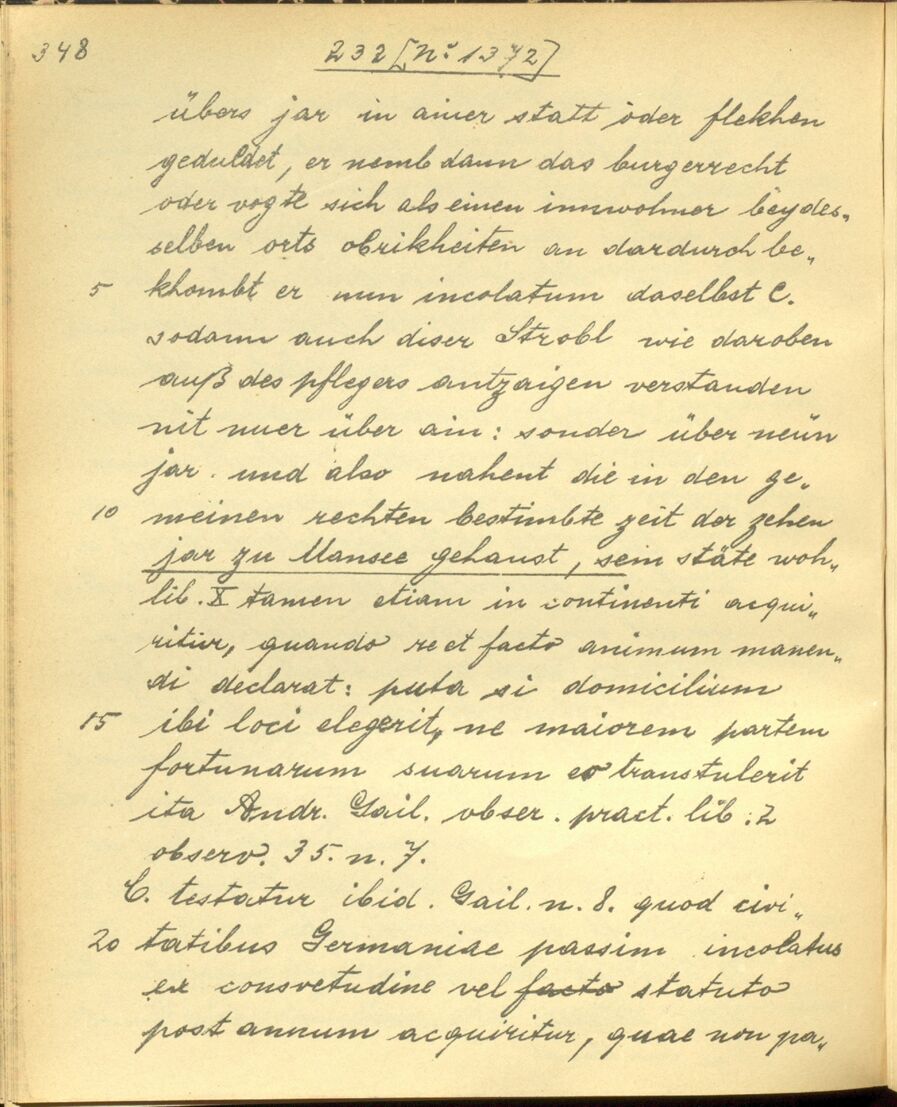 348 232 [No 1372]
übers jar in ainer statt oder flekhen
geduldet, er nemb dann das burgerrecht
oder vogte sich als einen innwohner bey des„
selben orts obrikheiten an dardurch be„
5 khombt er nun incolatum daselbst C.
sodann auch diser Strobl wie daroben
auß des pflegers antzaigen verstanden
nit nuer über ain: sonder über neün
jar. und also nahent die in den ge„
10 meinen rechten bestimbte zeit der zehen
jar zu Mansee gehaust, sein stäte woh„
lib. X tamen etiam in continenti acqui„
ritur, quando re et facto animum manen„
di declarat: puta si domicilium
15 ibi loci elegerit, ne maiorem partem
fortunarum suarum eo transtulerit
ita Andr. Gail. obser. pract. lib: 2
observ. 35. n. 7.
C. testatur ibid. Gail. n. 8. quod civi„
20 tatibus Germaniae passim incolatus
ex consvetudine vel facto statuto
post annum acquiritur, quae non pa„